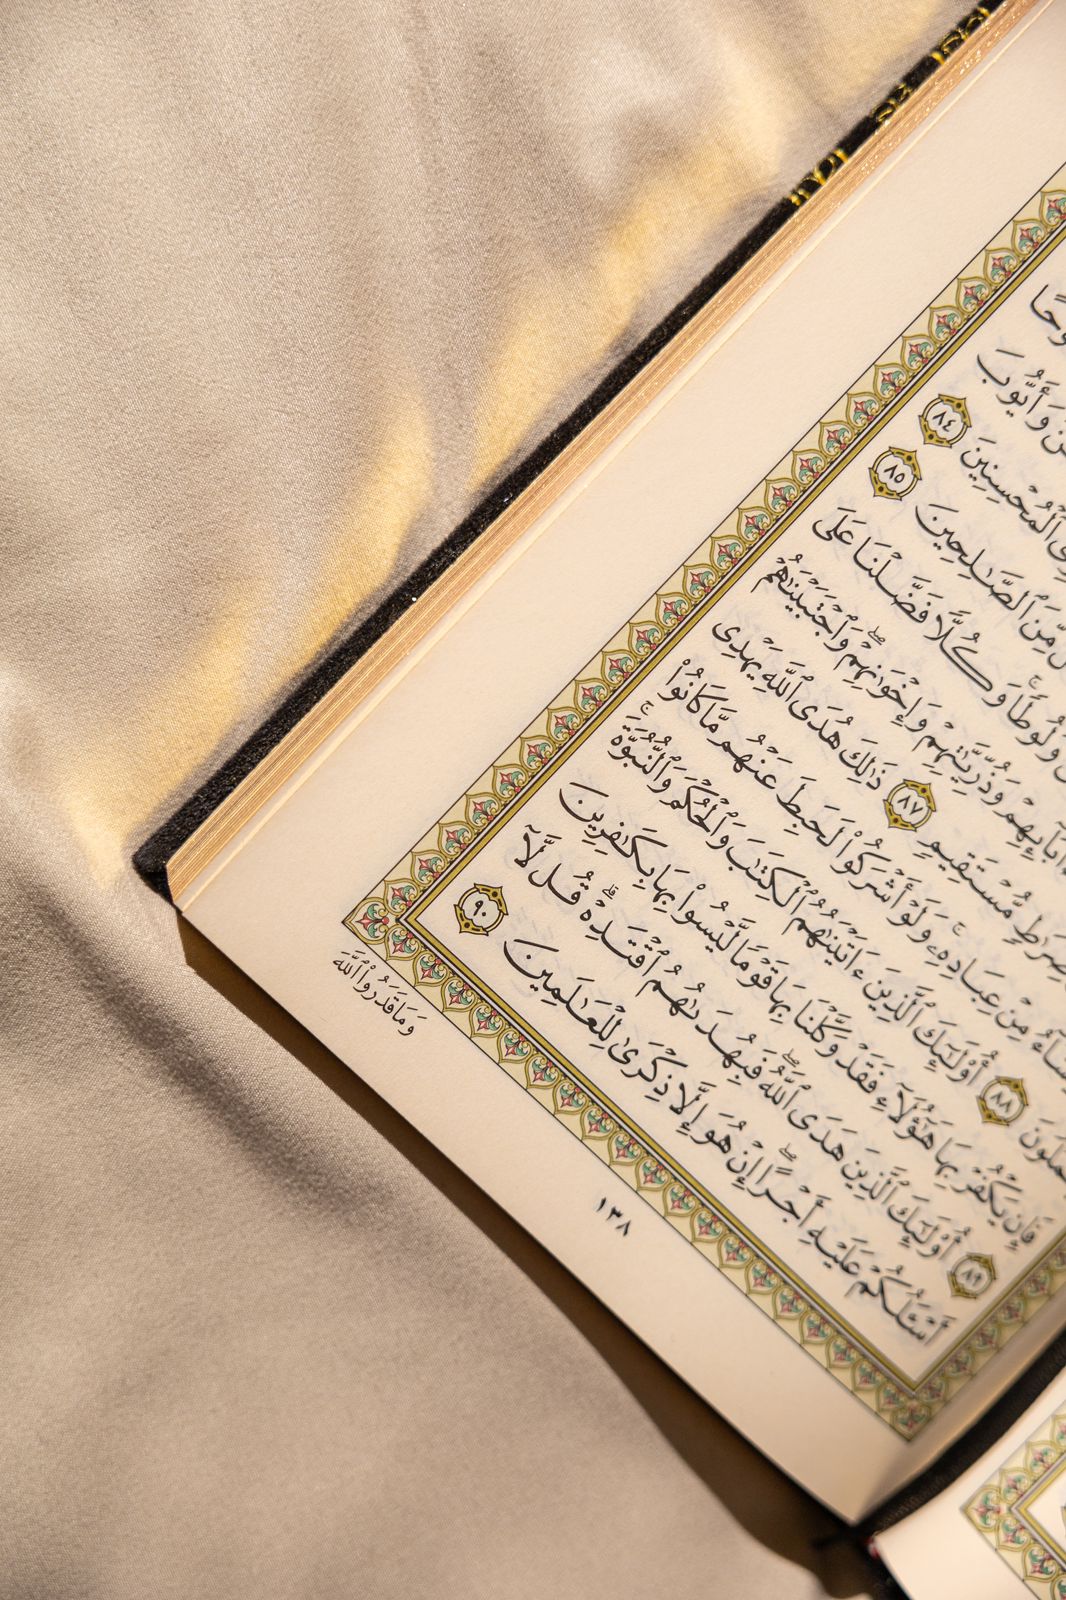 وَأَيُّوبَ
ٱلْمُحْسِنِينَ ٨٤
مِّنَ ٱلصَّـٰلِحِينَ ٨٥
وَلُوطًا ۚ وَكُلًّا فَضَّلْنَا عَلَى
ءَابَآئِهِمْ وَذُرِّيَّـٰتِهِمْ وَإِخْوَٰنِهِمْ ۖ وَٱجْتَبَيْنَـٰهُمْ
صِرَٰطٍ مُّسْتَقِيمٍ ٨٧ ذَٰلِكَ هُدَى ٱللَّهِ يَهْدِى
مِنْ عِبَادِهِۦ ۚ وَلَوْ أَشْرَكُوا۟ لَحَبِطَ عَنْهُم مَّا كَانُوا۟
٨٨ أُو۟لَـٰٓئِكَ ٱلَّذِينَ ءَاتَيْنَـٰهُمُ ٱلْكِتَـٰبَ وَٱلْحُكْمَ وَٱلنُّبُوَّةَ ۚ
فَإِن يَكْفُرْ بِهَا هَـٰٓؤُلَآءِ فَقَدْ وَكَّلْنَا بِهَا قَوْمًا لَّيْسُوا۟ بِهَا بِكَـٰفِرِينَ
٨٩ أُو۟لَـٰٓئِكَ ٱلَّذِينَ هَدَى ٱللَّهُ ۖ فَبِهُدَىٰهُمُ ٱقْتَدِهْ ۗ قُل لَّآ
أَسْـَٔلُكُمْ عَلَيْهِ أَجْرًا ۖ إِنْ هُوَ إِلَّا ذِكْرَىٰ لِلْعَـٰلَمِينَ ٩٠
وَمَا قَدَرُوا۟ ٱللَّهَ
١٣٨